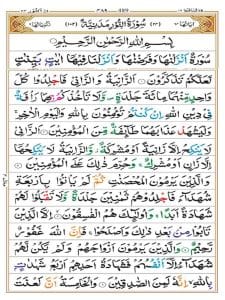 سُوْرَةُ النُّوْرِ مَدَنِيَّةٌ
بِسْمِ اللّٰهِ الرَّحْمٰنِ الرَّحِيْمِ
سُوْرَةٌ اَنْزَلْنٰهَا وَفَرَضْنٰهَا وَاَنْزَلْنَا فِيْهَاۤ اٰيٰتٍۭ بَيِّنٰتٍ
لَّعَلَّكُمْ تَذَكَّرُوْنَ اَلزَّانِيَةُ وَالزَّانِيْ فَاجْلِدُوْا كُلَّ
وَاحِدٍ مِّنْهُمَا مِائَةَ جَلْدَةٍ وَّلَا تَاْخُذْكُمْ بِهِمَا رَاْفَةٌ
فِيْ دِيْنِ اللّٰهِ اِنْ كُنْتُمْ تُؤْمِنُوْنَ بِاللّٰهِ وَالْيَوْمِ الْاٰخِرِ
وَلْيَشْهَدْ عَذَابَهُمَا طَآئِفَةٌ مِّنَ الْمُؤْمِنِيْنَ اَلزَّانِيْ
لَا يَنْكِحُ اِلَّا زَانِيَةً اَوْ مُشْرِكَةً وَّالزَّانِيَةُ لَا يَنْكِحُهَاۤ
اِلَّا زَانٍ اَوْ مُشْرِكٌ وَحُرِّمَ ذٰلِكَ عَلَى الْمُؤْمِنِيْنَ
وَالَّذِيْنَ يَرْمُوْنَ الْمُحْصَنٰتِ ثُمَّ لَمْ يَاْتُوْا بِاَرْبَعَةِ
شُهَدَآءَ فَاجْلِدُوْهُمْ ثَمٰنِيْنَ جَلْدَةً وَّلَا تَقْبَلُوْا لَهُمْ
شَهَادَةً اَبَدًا وَاُولٰٓئِكَ هُمُ الْفٰسِقُوْنَ اِلَّا الَّذِيْنَ
تَابُوْا مِنْۢ بَعْدِ ذٰلِكَ وَاَصْلَحُوْا فَاِنَّ اللّٰهَ غَفُوْرٌ
رَّحِيْمٌ وَالَّذِيْنَ يَرْمُوْنَ اَزْوَاجَهُمْ وَلَمْ يَكُنْ لَّهُمْ
شُهَدَآءُ اِلَّاۤ اَنْفُسُهُمْ فَشَهَادَةُ اَحَدِهِمْ اَرْبَعُ شَهٰدٰتٍۭ
بِاللّٰهِ اِنَّهٗ لَمِنَ الصّٰدِقِيْنَ وَالْخَامِسَةُ اَنَّ لَعْنَتَ